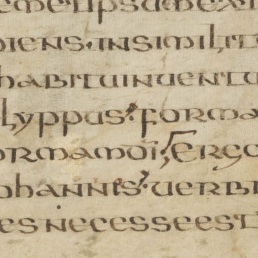 emetipsumexi
piens·insimilit
habituinuentu
lyppus· forma
ormamdī· ergo
ohannis· uerbi
esnecesseest